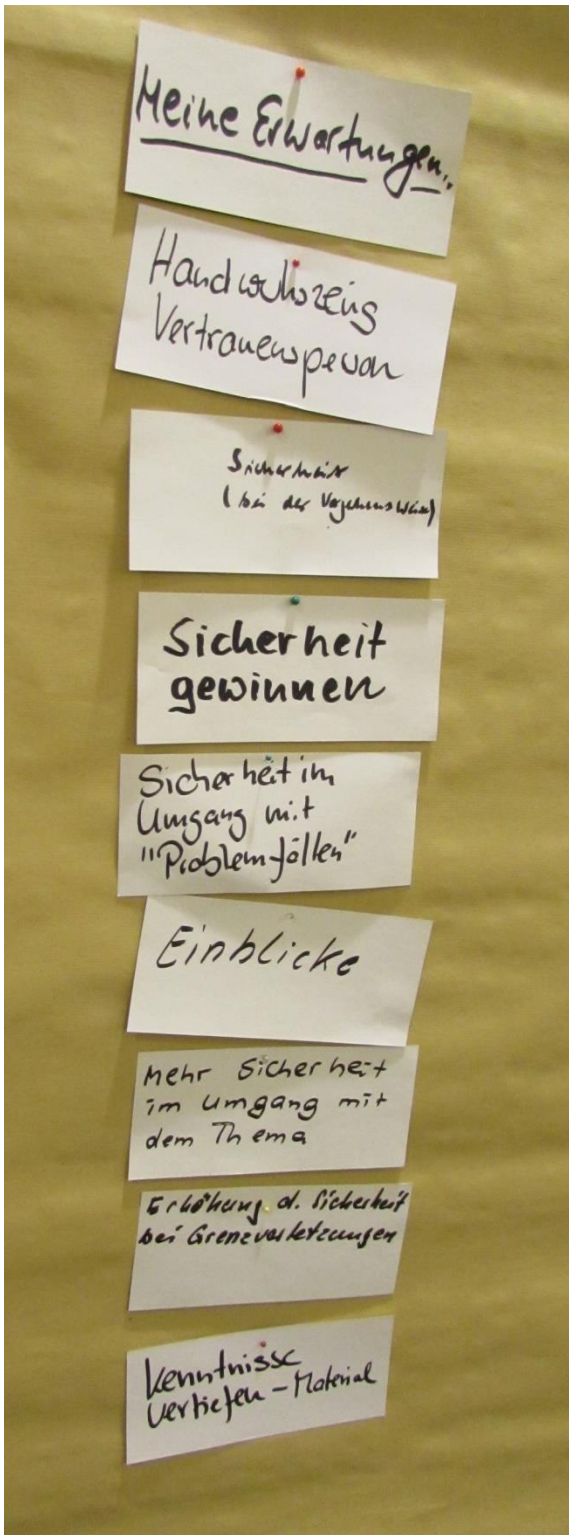 Meine Erwartungen..
Handwerkszeug
Vertrauensperson
Sicherheit
(bei der Vorgehensweise)
Sicherheit
gewinnen
Sicherheit im
Umgang mit
"Problemfällen"
Einblicke
Mehr Sicherheit
im Umgang mit
dem Thema
Erhöhung d. Sicherheit
bei Grenzverletzungen
Kenntnisse
vertiefen - Material